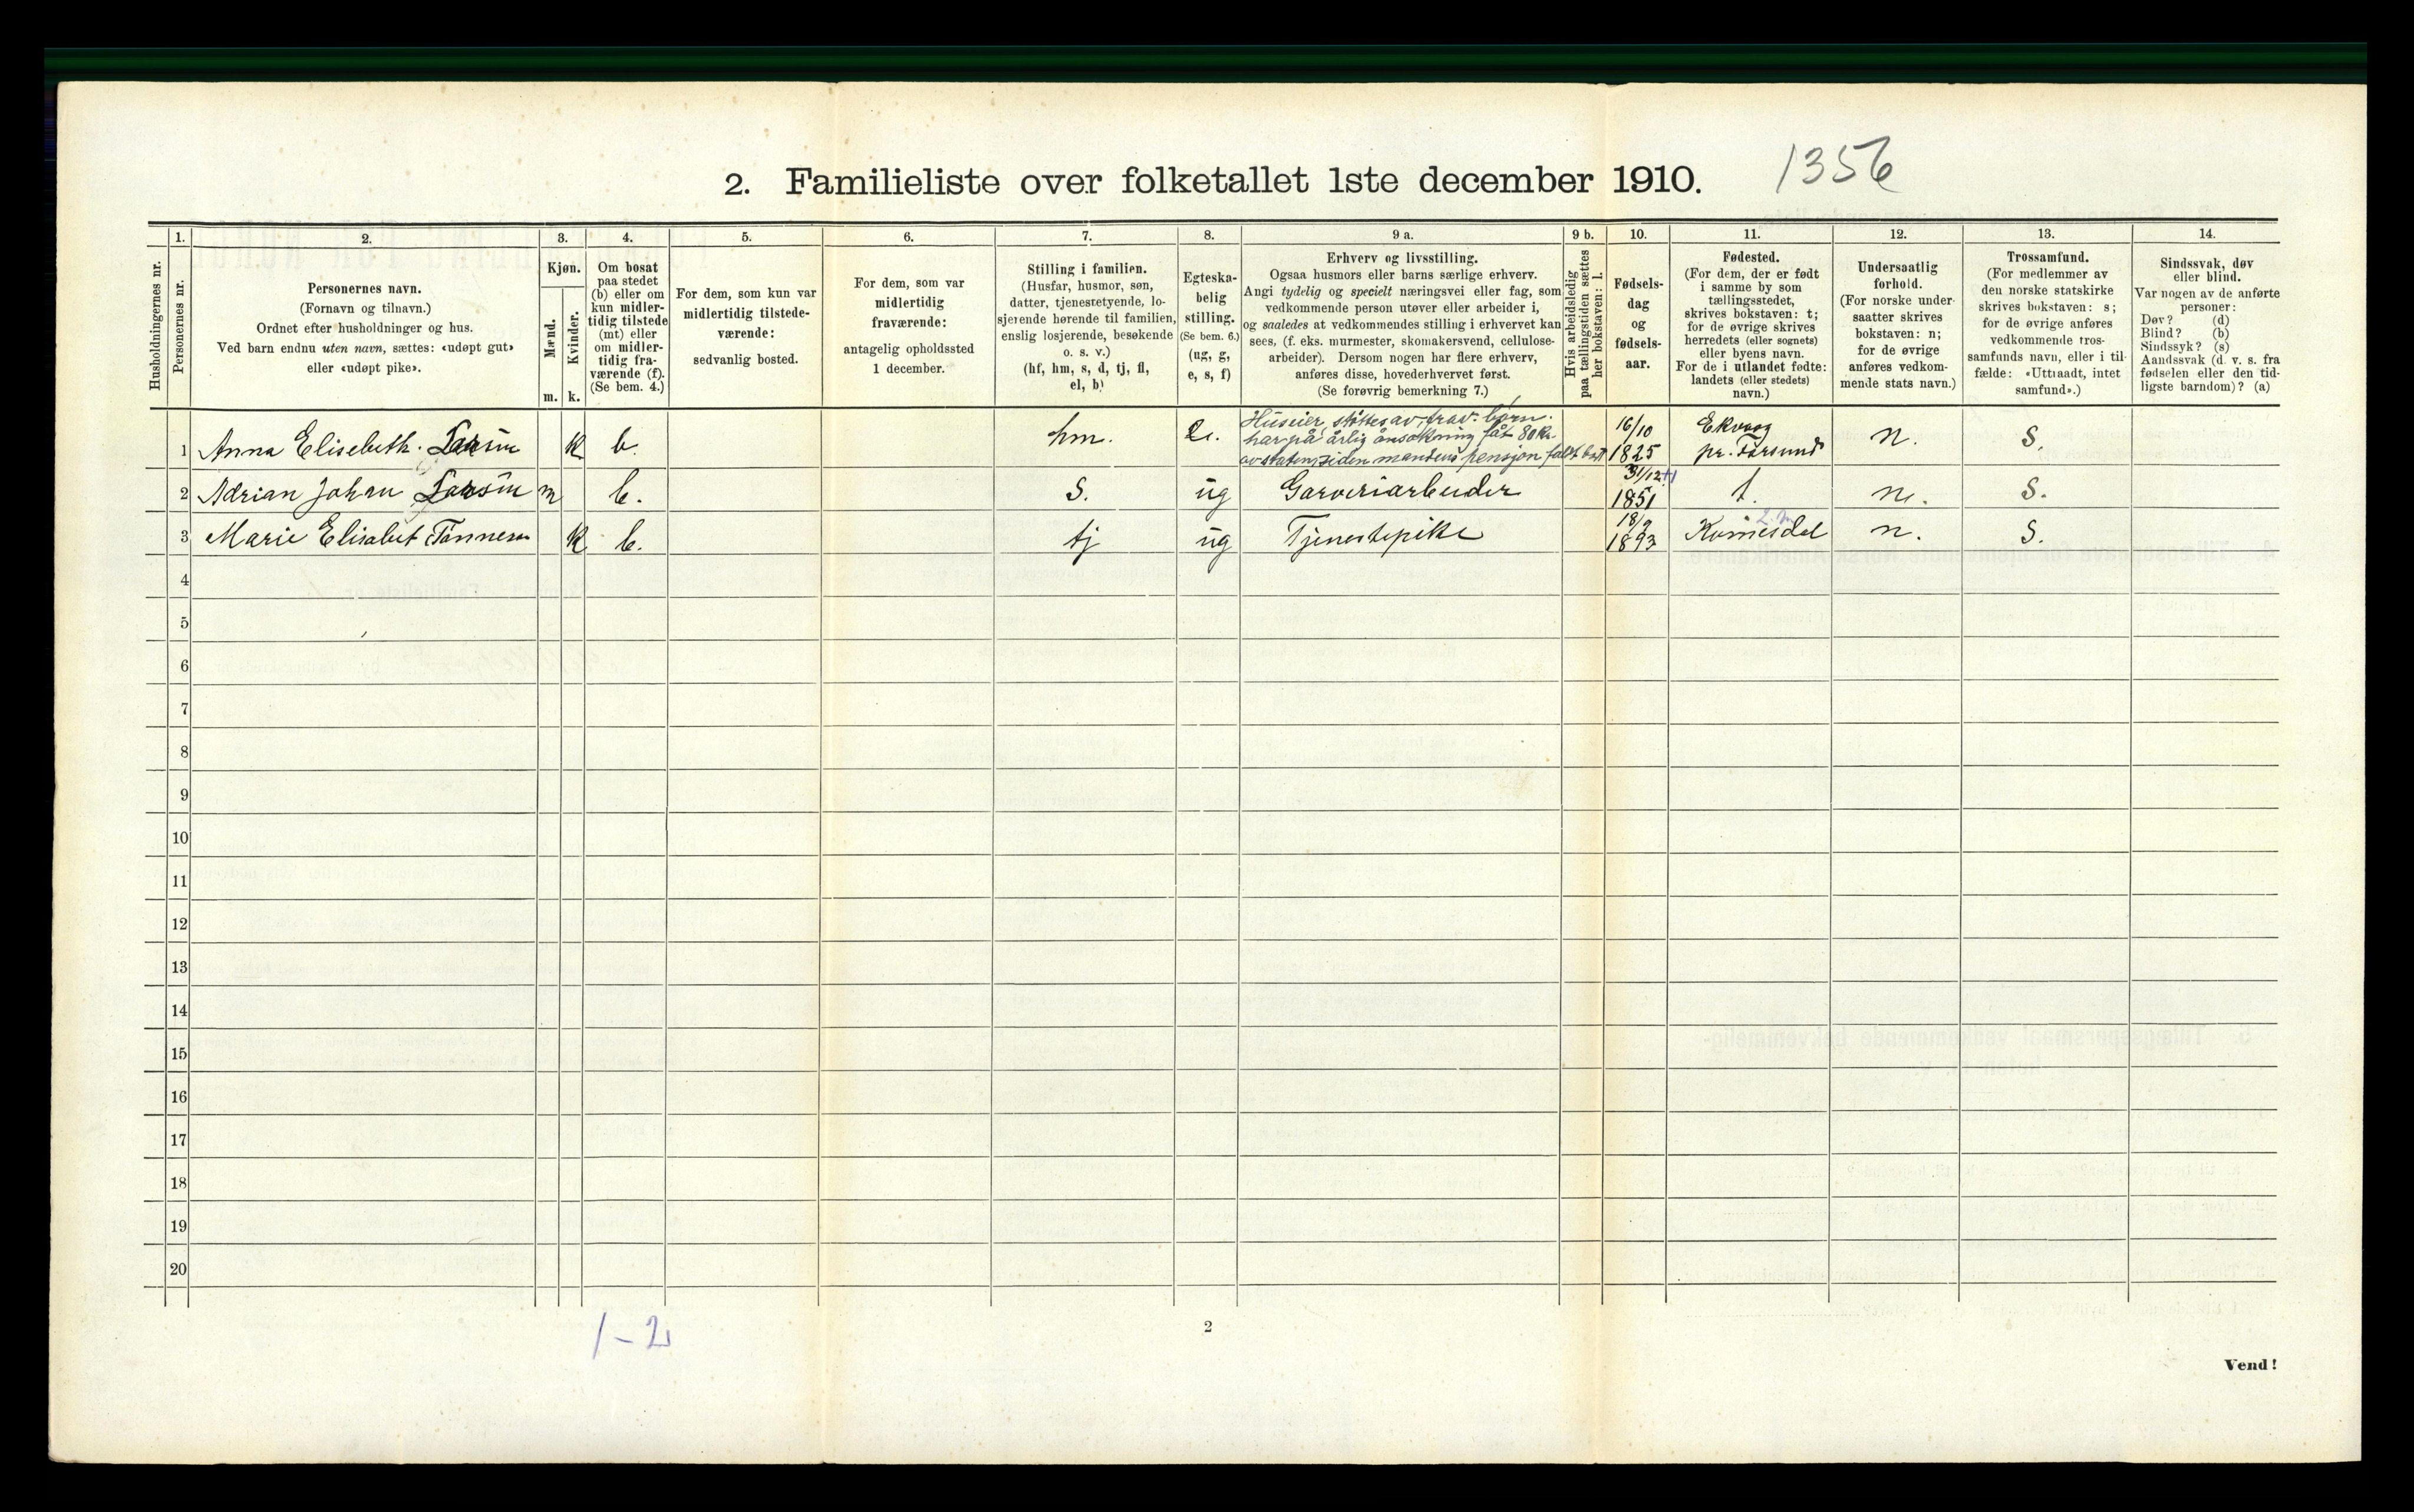 2. Familieliste over folketallet 1ste december 1910.
1356
Husholdningernes nr.
1.
Personernes nr.
2.
Personernes navn.
(Fornavn og tilnavn.)
Ordnet efter husholdninger og hus.
Ved barn endnu uten navn, sættes: «udøpt gut»
eller «udøpt pike».
3.
Kjøn.
Mænd.
Kvinder.
m. k.
4.
Om bosat
paa stedet
(b) eller om
kun midler-
tidig tilstede
(mt) eller
om midler-
tidig fra-
værende (f).
(Se bem. 4.)
5.
For dem, som kun var
midlertidig tilstede-
værende:
sedvanlig bosted.
6.
For dem, som var
midlertidig
fraværende:
antagelig opholdssted
1 december.
7.
Stilling i familien.
(Husfar, husmor, søn,
datter, tjenestetyende, lo-
sjerende hørende til familien,
enslig losjerende, besøkende
o. s. v.)
(hf, hm, s, d, tj, fl,
el, b)
8.
Egteska-
belig
stilling.
(Se bem. 6.)
(ug, g,
e, s, f)
9 a.
Erhverv og livsstilling.
Ogsaa husmors eller barns særlige erhverv.
Angi tydelig og specielt næringsvei eller fag, som
vedkommende person utøver eller arbeider i,
og saaledes at vedkommendes stilling i erhvervet kan
sees, (f. eks. murmester, skomakersvend, cellulose-
arbeider). Dersom nogen har flere erhverv,
anføres disse, hovederhvervet først.
(Se forøvrig bemerkning 7.)
9 b.
Hvis arbeidsledig
paa tællingstiden sættes
her bokstaven: l.
10.
Fødsels-
dag
og
fødsels-
aar.
11.
Fødested.
(For dem, der er født
i samme by som
tællingsstedet,
skrives bokstaven: t;
for de øvrige skrives
herredets (eller sognets)
eller byens navn.
For de i utlandet fødte:
landets (eller stedets)
navn.)
12.
Undersaatlig
forhold.
(For norske under-
saatter skrives
bokstaven: n;
for de øvrige
anføres vedkom-
mende stats navn.)
13.
Trossamfund.
(For medlemmer av
den norske statskirke
skrives bokstaven: s;
for de øvrige anføres
vedkommende tros-
samfunds navn, eller i til-
fælde: «Uttraadt, intet
samfund».)
14.
Sindssvak, døv
eller blind.
Var nogen av de anførte
personer:
Døv? (d)
Blind? (b)
Sindssyk? (s)
Aandssvak (d. v. s. fra
fødselen eller den tid-
ligste barndom)? (a)
1 Anna Elisebeth. Larsen k b. hm. e. Huseier, støttes av frav. børn. har på årlig ansøkning fåt 80 Kr. av staten, siden mandens pensjon faldt bort 16/10 1825 Ekvaag pr. Farsund n. S.
2 Adrian Johan Larsen m b. S. ug Garveriarbeider 31/12 1851 t. n. S.
3 Marie Elisabet Tønnesen k b. tj ug Tjenestepike 18/9 1893 Kvinesdal n. S.
4
5
6
7
8
9
10
11
12
13
14
15
16
17
18
19
20
1-2
2
Vend!